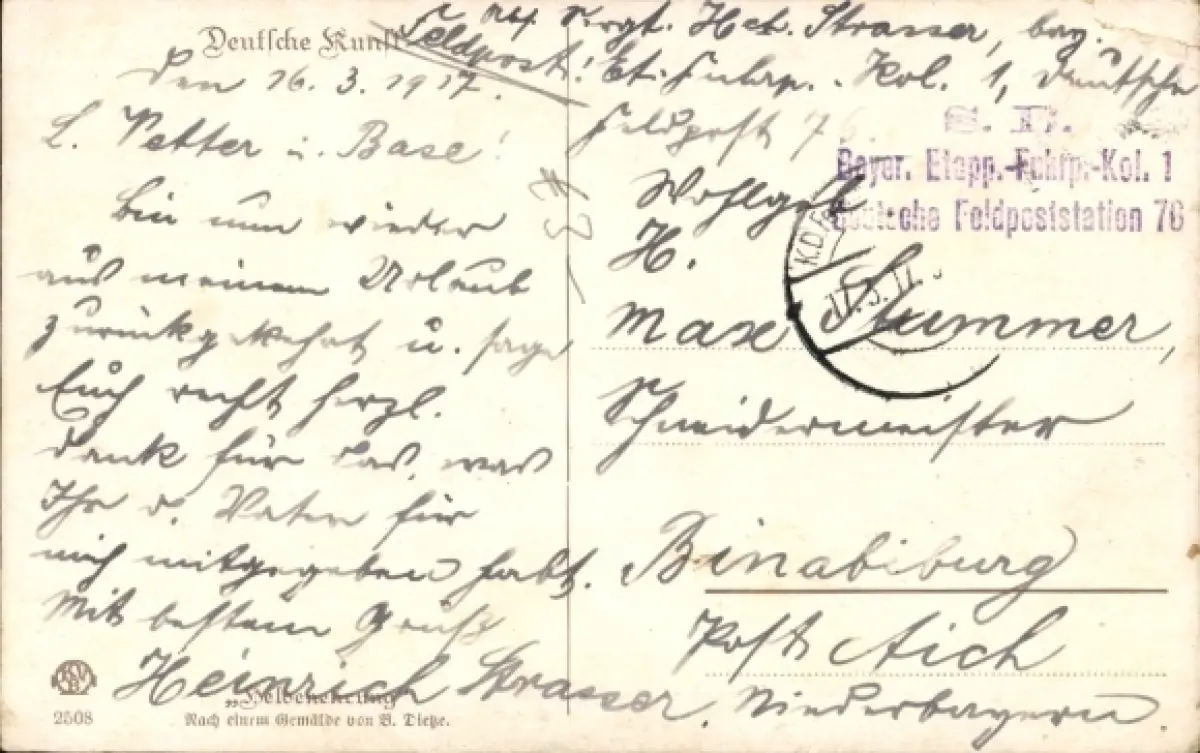 Deutsche Kunst
Feldpost!
den 16. 3. 1917.
L. Vetter u. Base!
bin nun wieder
aus meinem Urlaub
zurückgekehrt u. sage
Euch recht herzl.
Dank für das, was
Ihr d. Vater für
mich mitgegeben habt.
Mit bestem Gruß
Heinrich Strasser.
„Heldenehrung“
Nach einem Gemälde von B. Dietze.
2508
Sergt. Hch. Strasser, bay.
Et. Fuhrp.-Kol. 1, deutsche
Feldpost 76.
S. B.
Bayer. Etapp.-Fuhrp.-Kol. 1
Deutsche Feldpoststation 76
K.D.
17.3.17.
Wohlgeb
H.
Max Stummer,
Schneidermeister
Binabiburg
Post Aich
Niederbayern.